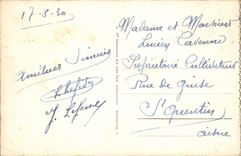 17-8-30
Amitiés Sincères
J. Lefebvre
Madame et Monsieur
Lucien Cavenne
Propriétaire Cultivateur
Rue de Guise
St Quentin
Aisne